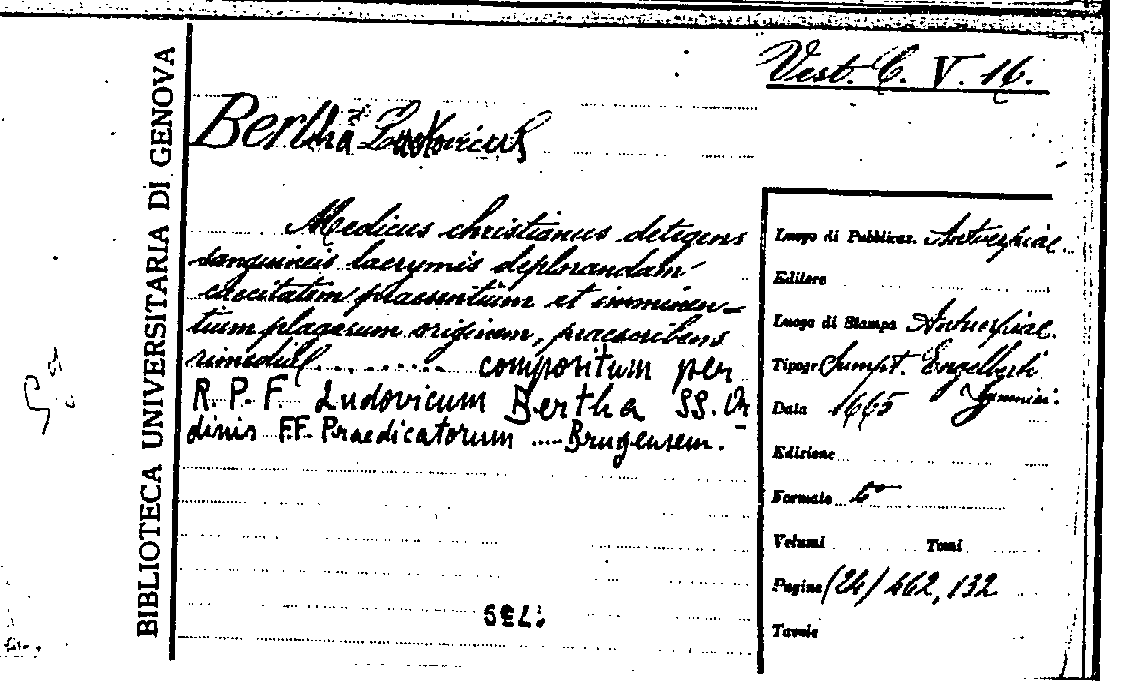 Vest. C. V. 16.
BIBLIOTECA UNIVERSITARIA DI GENOVA
Bertha Ludovicus
Medicus christianus detegens
sanguineis lacrymis deplorandam
caecitatem praesentium et imminen-
tium plagarum originem, praescribens
remedia ......... compositum per
R. P. F. Ludovicum Bertha SS. Or
dinis F.F. Praedicatorum .... Brugensem.
Luogo di Pubblicaz. Antverpiae
Editore
Luogo di Stampa Antverpiae
Tipogr Sumpt. Engelberti
Gymnici.
Data 1665
Edizione
Formato 4°
Volumi Tomi
Pagine (24) 462, 132
Tavole